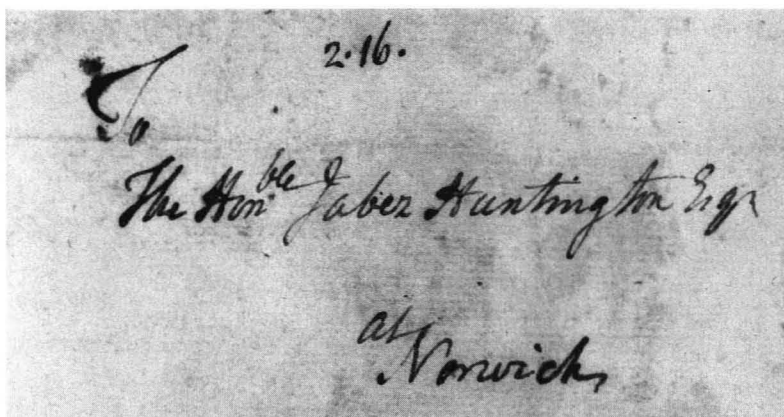 2.16.
To
The Honble Jabez Huntington Esqr
at
Norwich